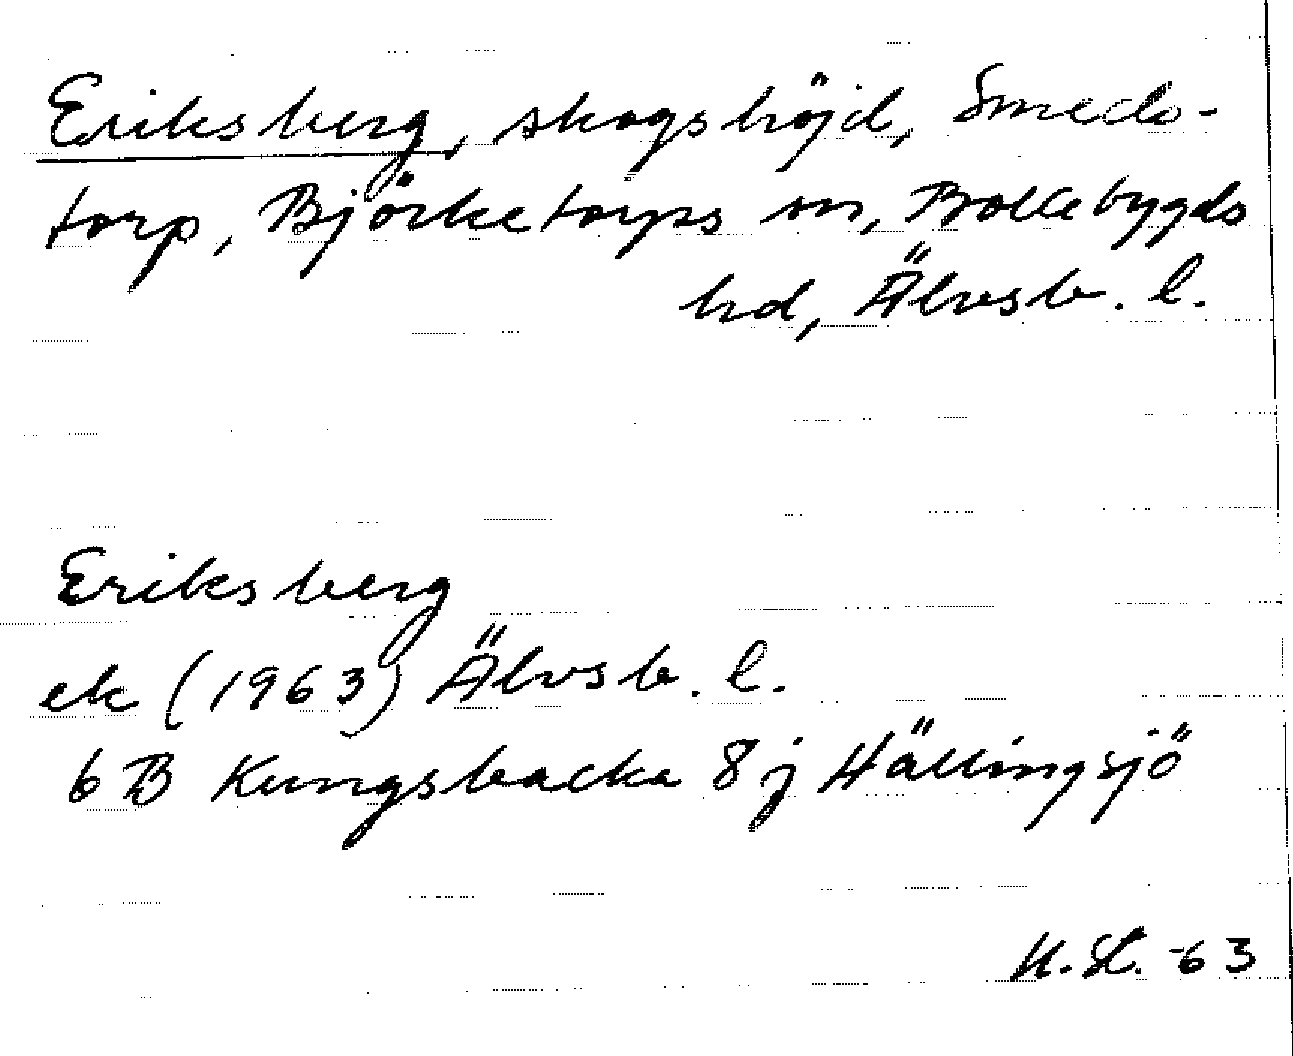 Eriksberg, skogshöjd, Smeds-
torp, Björketorps sn, Bollebygds
hd, Älvsb. l.
Eriksberg
ek (1963) Älvsb. l.
6 B Kungsbacka 8 j Hällingsjö
H.L. -63